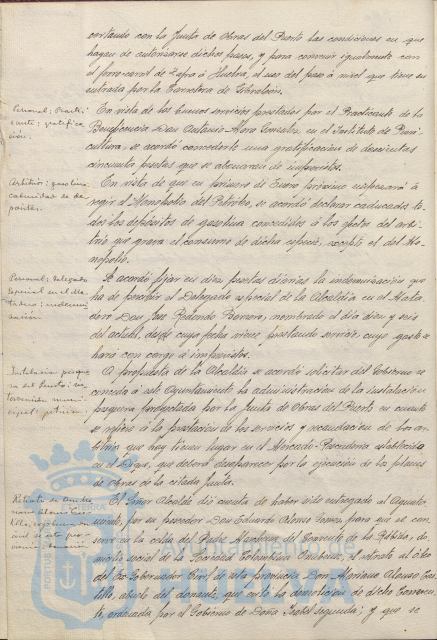 certando con la Junta de Obras del Puerto las condiciones en que
hayan de autorizarse dichos pasos, y para convenir igualmente con
el ferrocarril de Zafra á Huelva, el uso del paso á nivel que tiene su
entrada por la Carretera de Gibraleón.
Personal; Practi-
cante; gratifica-
ción.
En vista de los buenos servicios prestados por el Practicante de la
Beneficencia Don Antonio Haro González, en el Instituto de Pueri-
cultura, se acordó concederle una gratificación de doscientas
cincuenta pesetas que se abonarán de imprevistos.
Arbitrios; gasolina
caducidad de de-
pósitos.
En vista de que en primero de Enero próximo empezará á
regir el Monopolio del Petróleo, se acordó declarar caducados to-
dos los depósitos de gasolina concedidos á los efectos del arbi-
trio que grava el consumo de dicha especie, excepto el del Mo-
nopolio.
Personal; Delegado
especial en el Ma-
tadero; indemni-
zación.
Se acordó fijar en diez pesetas diarias la indemnización que
ha de percibir el Delegado especial de la Alcaldía en el Mata-
dero Don José Redondo Romero, nombrado el día diez y seis
del actual, desde cuya fecha viene prestando servicio, cuyo gasto se
hará con cargo á imprevistos.
Instalación pesque-
ra del Puerto; in-
tervención muni-
cipal; petición.
A propuesta de la Alcaldía se acordó solicitar del Gobierno se
conceda á este Ayuntamiento la administración de la instalación
pesquera proyectada por la Junta de Obras del Puerto en cuanto
se refiere á la prestación de los servicios y recaudación de los ar-
bitrios que hoy tienen lugar en el Mercado-Pescadería establecido
en el Dique, que deberá desaparecer por la ejecución de los planes
de Obras de la citada Junta.
El Señor Alcalde dió cuenta de haber sido entregado al Ayunta-
miento, por su poseedor Don Eduardo Alonso Gómez, para que se con-
serve en la celda del Padre Marchena del Convento de la Rábida, do-
micilio social de la Sociedad Colombina Onubense, el retrato al óleo
del Ex-Gobernador Civil de esta provincia Don Mariano Alonso Cas-
tillo, abuelo del donante, que evitó la demolición de dicho Convento
ordenada por el Gobierno de Doña Isabel segunda; y que se
Ayuntamiento de
PORTUS
TERRA